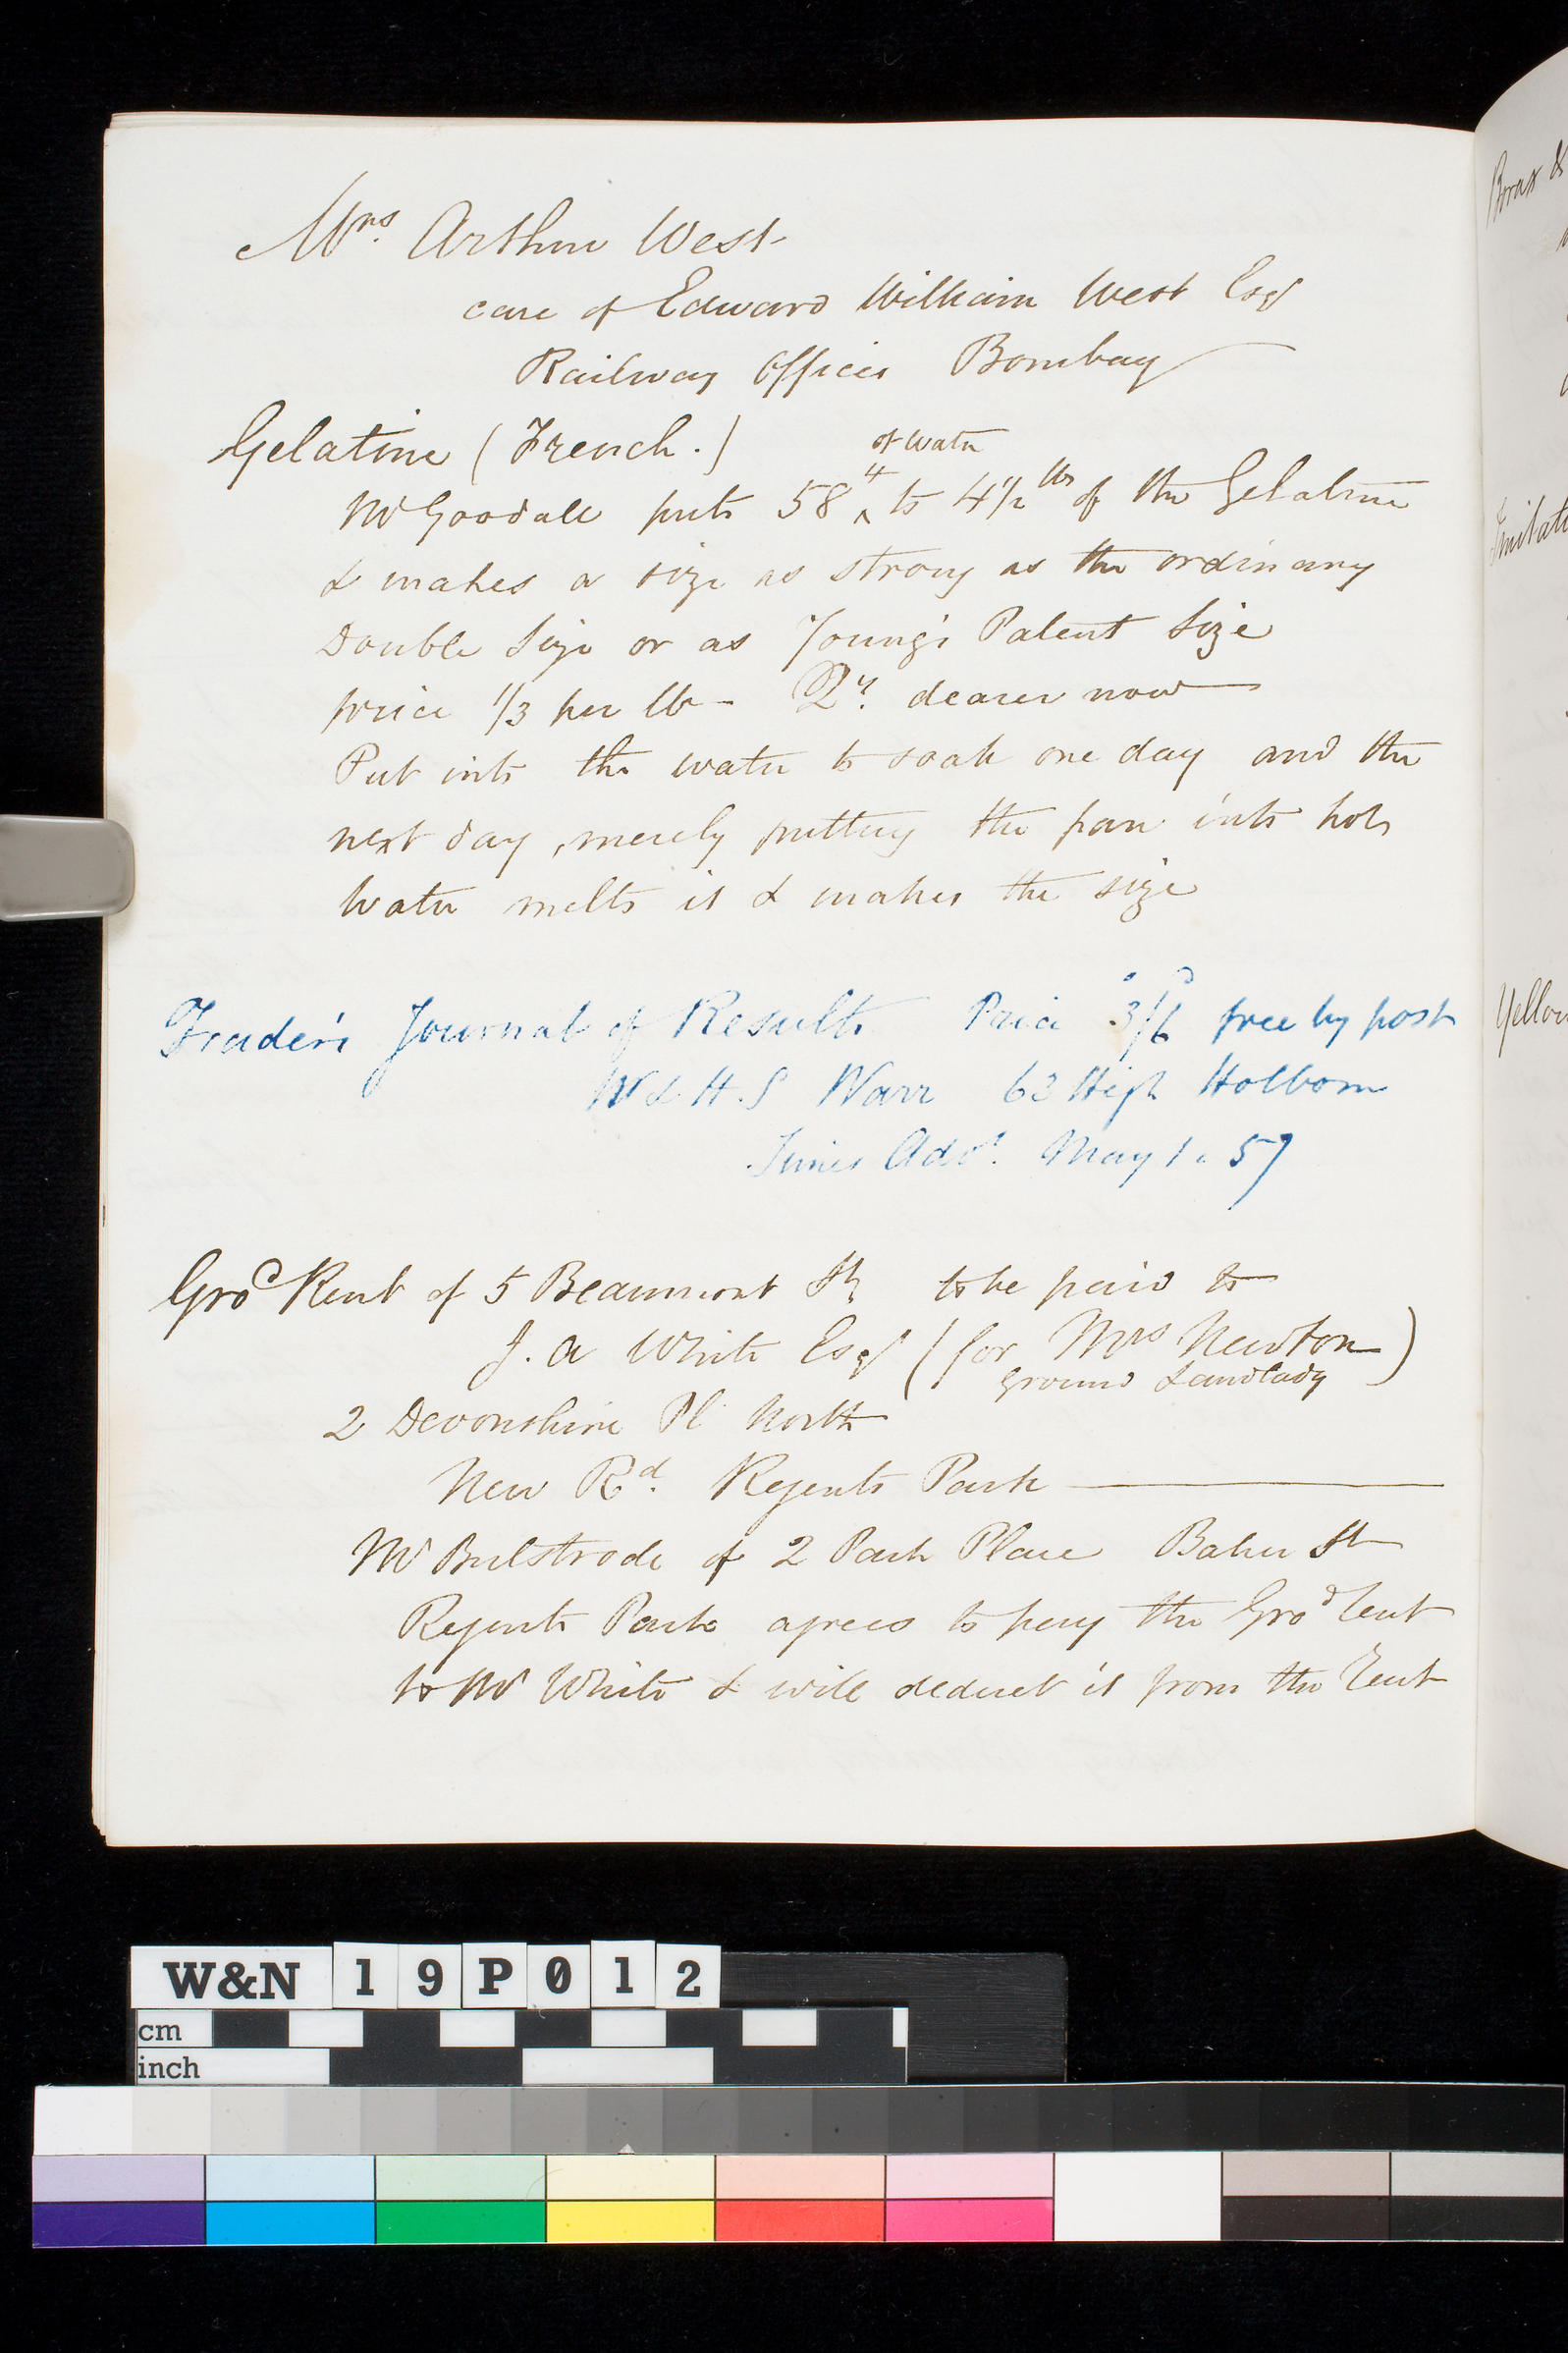 Mrs. Arthur West
care of Edward William West Esqr
Railway Offices Bombay
Gelatine (French.)
of water
Mr Goodall puts 58 lb ^ to 4 1/2 lbs of the Gelatine
& makes a size as strong as the ordinary
Double Size or as Young's Patent Size
price 1/3 per lb - Qy. dearer now
Put into the water to soak one day and the
next day, merely putting the pan into hot
Water melts it & makes the size
Trader's Journal of Results Price 3/6 free by post
W & H.S Warr 63 High Holborn
Times Advt. May 1. 57
Grod Rent of 5 Beaumont St to be paid to
J. A White Esqr (for Mrs Newton)
ground Landlady
2 Devonshire Pl North
New Rd. Regents Park
Mr Bulstrode of 2 Park Place Baker St
Regents Park agrees to pay the Grod rent
to Mr White & will deduct it from the rent
Borax &
Imitati
Yellow
W&N 19P012
cm
inch